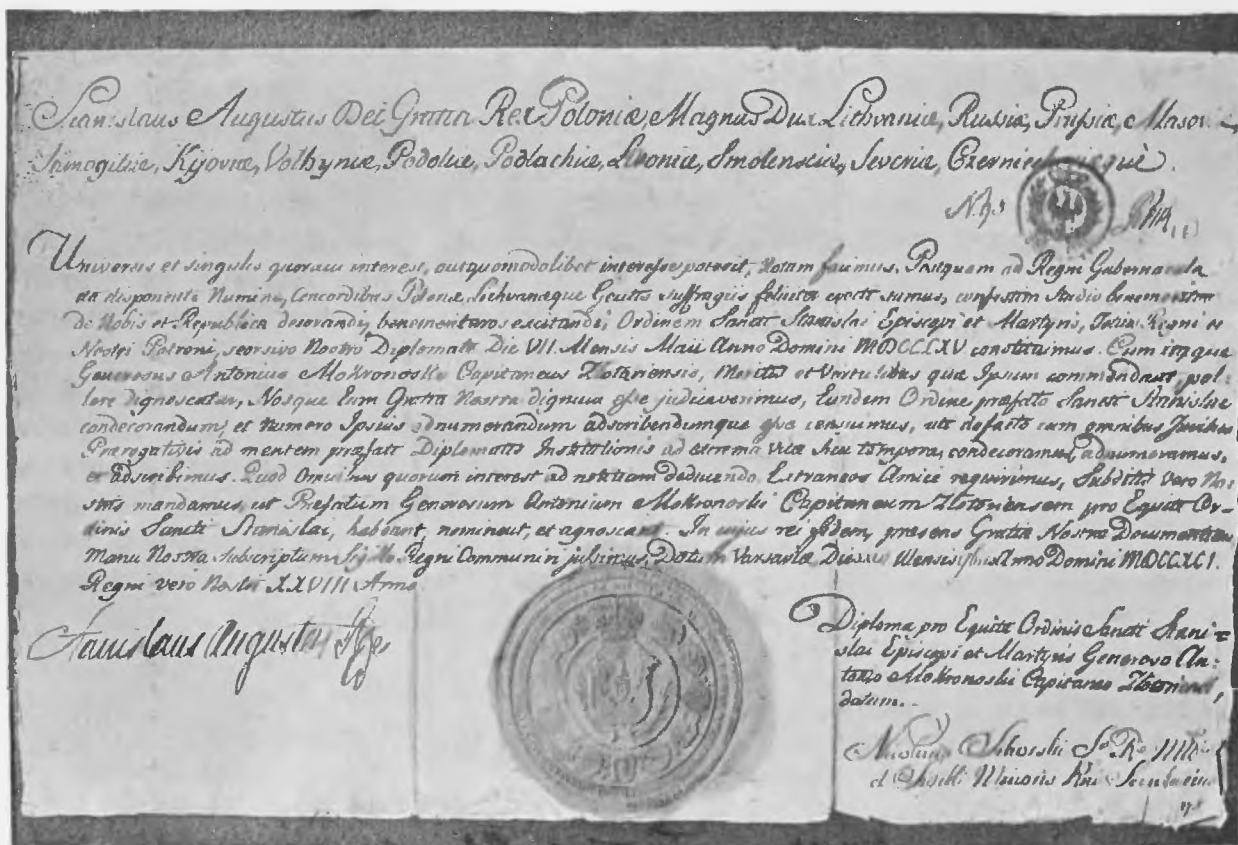 Stanislaus Augustus Dei Gratia Rex Poloniæ, Magnus Dux Lithvaniæ, Russiæ, Prussiæ, Masoviæ,
Samogitiæ, Kijoviæ, Volhyniæ, Podoliæ, Podlachiæ, Livoniæ, Smolensciæ, Severiæ, Czerniechoviæquè.
Universis et singulis quorum interest, aut quomodolibet interesse poterit, Notum facimus, Postquam ad Regni Gubernacula
ita disponente Numine, Concordibus Polonæ, Lithvanæque Gentis suffragiis feliciter evecti sumus, confestim studio benemeritos
de Nobis et Republica decorandi, benemerituros excitandi, Ordinem Sancti Stanislai Episcopi et Martyris, Totius Regni et
Nostri Patroni, seorsivo Nostro Diplomate Die VII Mensis Maii Anno Domini MDCCLXV constituimus. Cum itaque
Generosus Antonius Mokronoski Capitaneus Zlotoriensis, Meritis et Virtutibus quæ Ipsum commendant, pol-
lere dignoscatur, Nosque Eum Gratia Nostra dignum esse judicaverimus, Eundem Ordine præfato Sancti Stanislai
condecorandum, et Numero Ipsius adnumerandum adscribendumque esse censuimus, uti de facto cum omnibus Juribus
Prerogativis ad mentem præfati Diplomatis Institutionis ad extrema vitæ suæ tempora, condecoramus, adnumeramus,
et adscribimus. Quod Omnibus quorum interest ad notitiam deducendo, Extraneos Amice requirimus, Subditis vero No-
stris mandamus, ut Prefatum Generosum Antonium Mokronoski Capitaneum Zlotoriensem pro Equite Or-
dinis Sancti Stanislai, habeant, nominent, et agnoscant. In cujus rei fidem, presens Gratiæ Nostræ Documentum
Manu Nostra subscriptum Sigillo Regni Communiri jussimus, Datum Varsaviæ Die Mensis Anno Domini MDCCXCI.
Regni vero Nostri XXVIII Anno.
Stanislaus Augustus Rex
Diploma pro Equite Ordinis Sancti Stani=
slai Episcopi et Martyris Generoso An=
tonio Mokronoski Capitaneo Zlotoriensi,
datum.